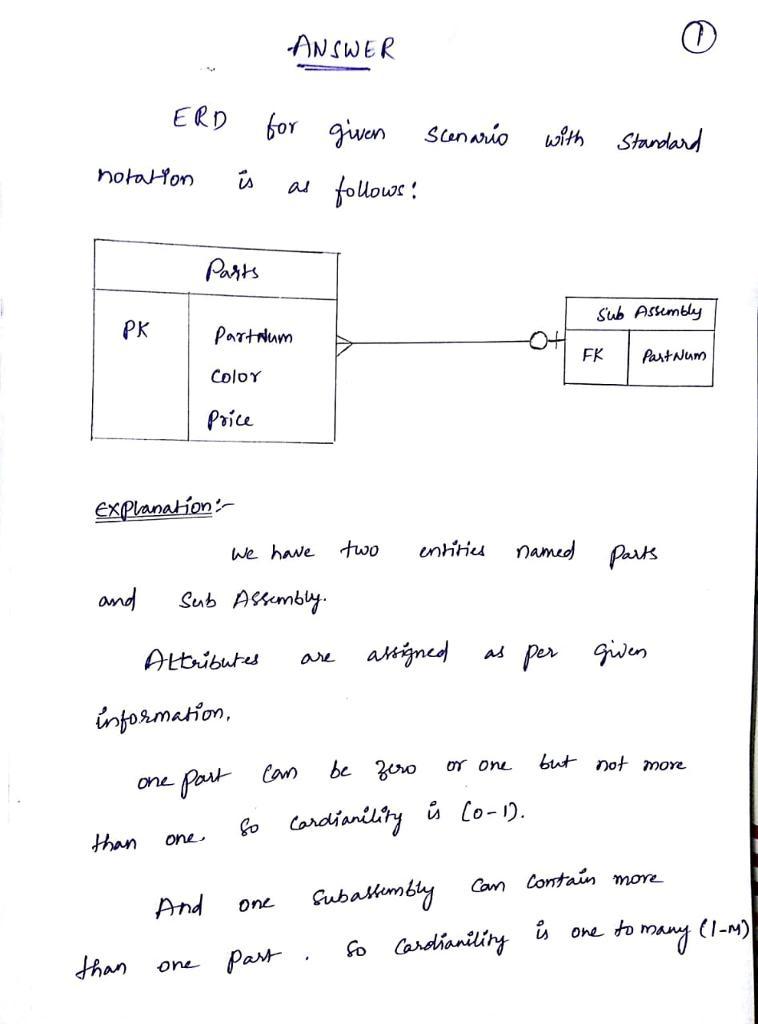 ANSWER
1
ERD for given scenario with standard
notation is as follows:
Parts
PK
PartNum
Color
Price
Sub Assembly
FK
PartNum
Explanation:-
We have two entities named parts
and Sub Assembly.
Attributes are assigned as per given
information.
one part can be zero or one but not more
than one. So Cardianility is (0-1).
And one subassembly can contain more
than one part. So Cardianility is one to many (1-M)